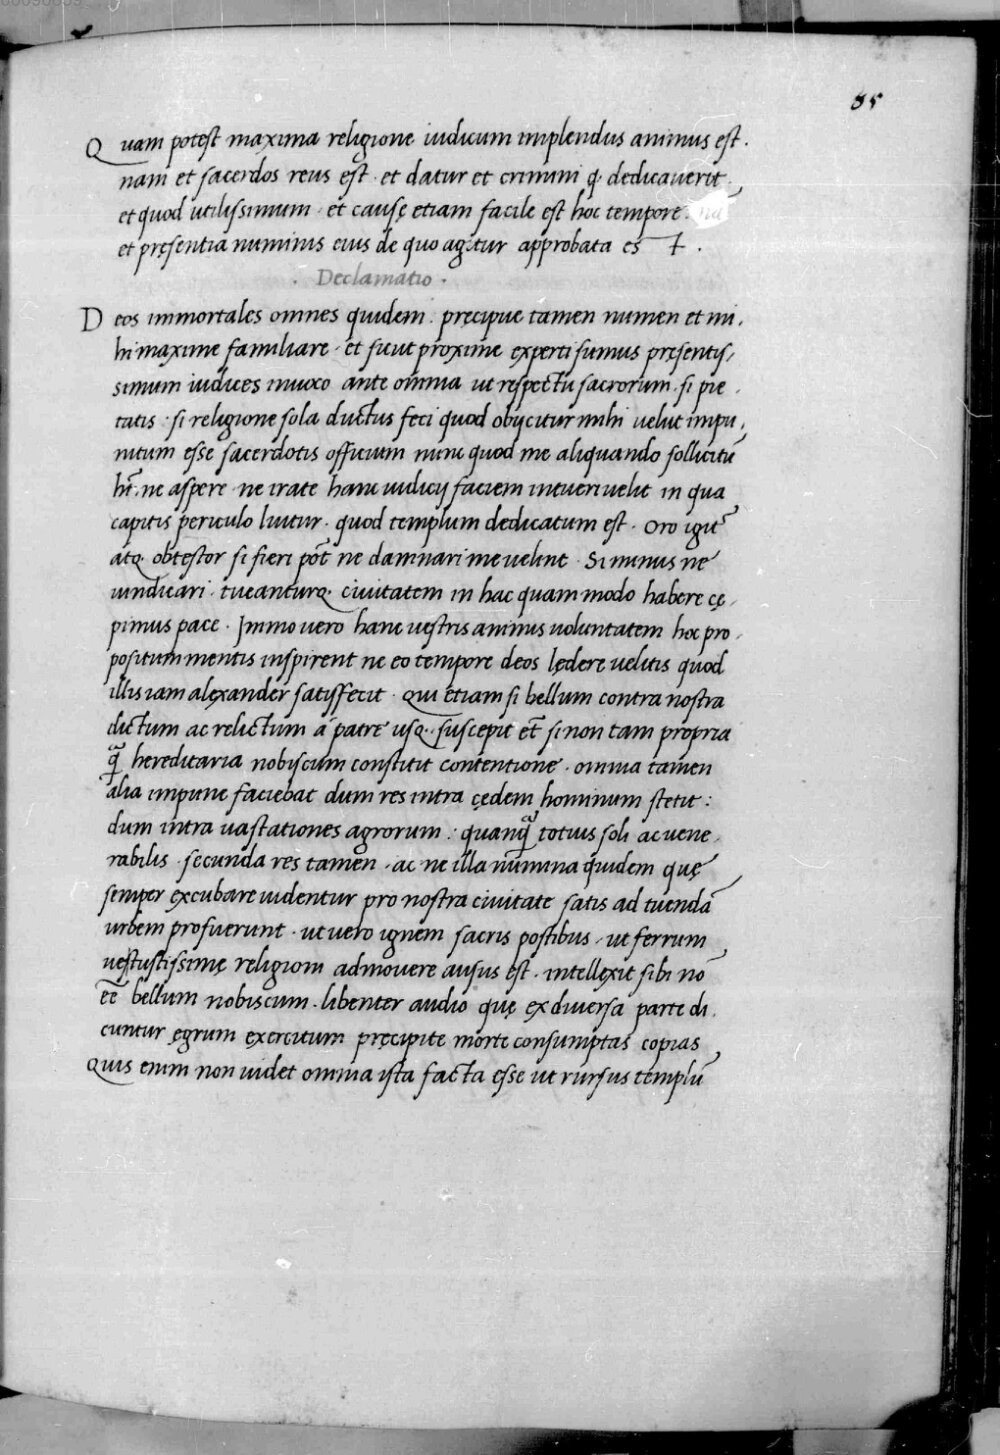 85
Quam potest maxima religione iudicum implendus animus est.
nam et sacerdos reus est. et datur et crimini q. dedicauerit
et quod utilissimum. et causę etiam facile est hoc tempore.
et pręsentia numinis eius de quo agitur approbata es t.
. Declamatio .
Deos immortales omnes quidem. precipue tamen numen et mi,
hi maxime familiare. et sicut proxime experti sumus pręsentis,
simum iudices inuoco ante omnia ut respectu sacrorum. si pie,
tatis. si religione sola ductus feci quod obijcitur mihi uelut impu,
nitum esse sacerdotis officium nunc quod me aliquando sollicitū
hn̄t. ne aspere ne irate hanc iudicij faciem intueri uelit in qua
capitis periculo luitur. quod templum dedicatum est. Oro igit᷑
atq. obtestor si fieri pōt ne damnari me uelint. Si minus ne
uindicari. tueanturq. ciuitatem in hac quam modo habere cę,
pimus pace. Immo uero hanc uestris animis uoluntatem hoc pro,
positum mentis inspirent ne eo tempore deos lędere uelitis quod
illis iam alexander satisfecit. Qui etiam si bellum contra nostra
dictum ac relictum a patre usq. suscepit et̄ si non tam propria
qᷓ hereditaria nobiscum constitit contentione. omnia tamen
alia impune faciebat dum res intra cędem hominum stetit:
dum intra uastationes agrorum: quanqᷓ totius soli ac uene,
rabilis. secunda res tamen. ac ne illa numina quidem quę
semper excubare uidentur pro nostra ciuitate satis ad tuendā
urbem profuerunt. ut uero ignem sacris postibus, ut ferrum
uestustissimę religioni admouere ausus est. intellexit sibi nō
eē bellum nobiscum. libenter audio quę ex diuersa parte di,
cuntur ęgrum exercitum pręcipite morte consumptas copias
Quis enim non uidet omnia ista facta esse ut rursus templū